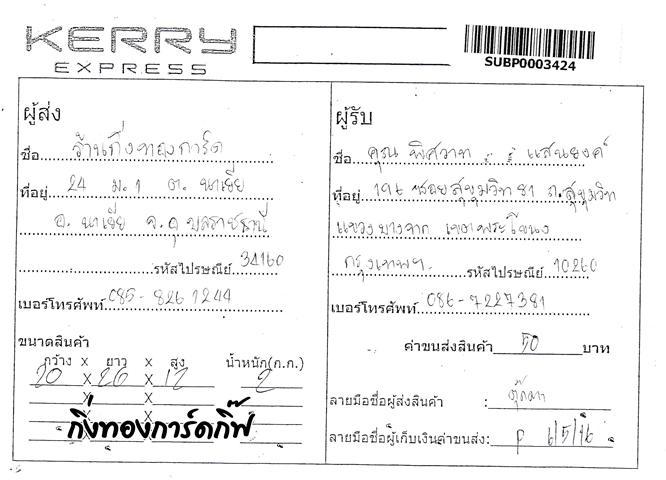 KERRY
EXPRESS
SUBP0003424
ผู้ส่ง
ชื่อ ร้านกิ่งทองการ์ด
ที่อยู่ 24 ม.1 ต. นาเยีย
อ. นาเยีย จ.อุบลราชธานี
รหัสไปรษณีย์ 34160
เบอร์โทรศัพท์ 085-826 1244
ขนาดสินค้า
กว้าง X ยาว X สูง น้ำหนัก(ก.ก.)
20 X 26 X 12 2
X X
X X
กิ่งทองการ์ดกิ๊ฟ
ผู้รับ
ชื่อ คุณ พิศวาท แสนยงค์
ที่อยู่ 196 ซอยสุขุมวิท 81 ถ.สุขุมวิท
แขวงบางจาก เขตพระโขนง
กรุงเทพฯ รหัสไปรษณีย์ 10260
เบอร์โทรศัพท์ 086-7227381
ค่าขนส่งสินค้า 50 บาท
ลายมือชื่อผู้ส่งสินค้า : ตุ๊กตา
ลายมือชื่อผู้เก็บเงินค่าขนส่ง: P 6/5/16